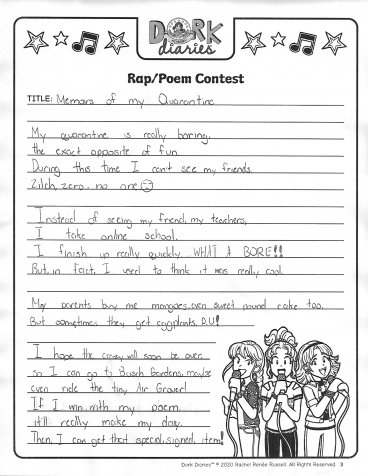 DORK
diaries
Rap/Poem Contest
TITLE: Memoirs of my Quarantine
My quarantine is really boring,
the exact opposite of fun.
During this time I can't see my friends.
Zilch, zero, no one
Instead of seeing my friend, my teachers,
I take online school.
I finish up really quickly. WHAT A BORE!!
But, in fact, I used to think it was really cool.
My parents buy me mangoes, even sweet pound cake too.
But sometimes they get eggplants. E.U!
I hope the crazy will soon be over
so I can go to Busch Gardens, maybe
even ride the tiny Air Grover!
If I win with my poem
it'll really make my day.
Then, I can get that special, signed, item!
Dork Diaries™ © 2020 Rachel Renée Russell. All Rights Reserved. 3